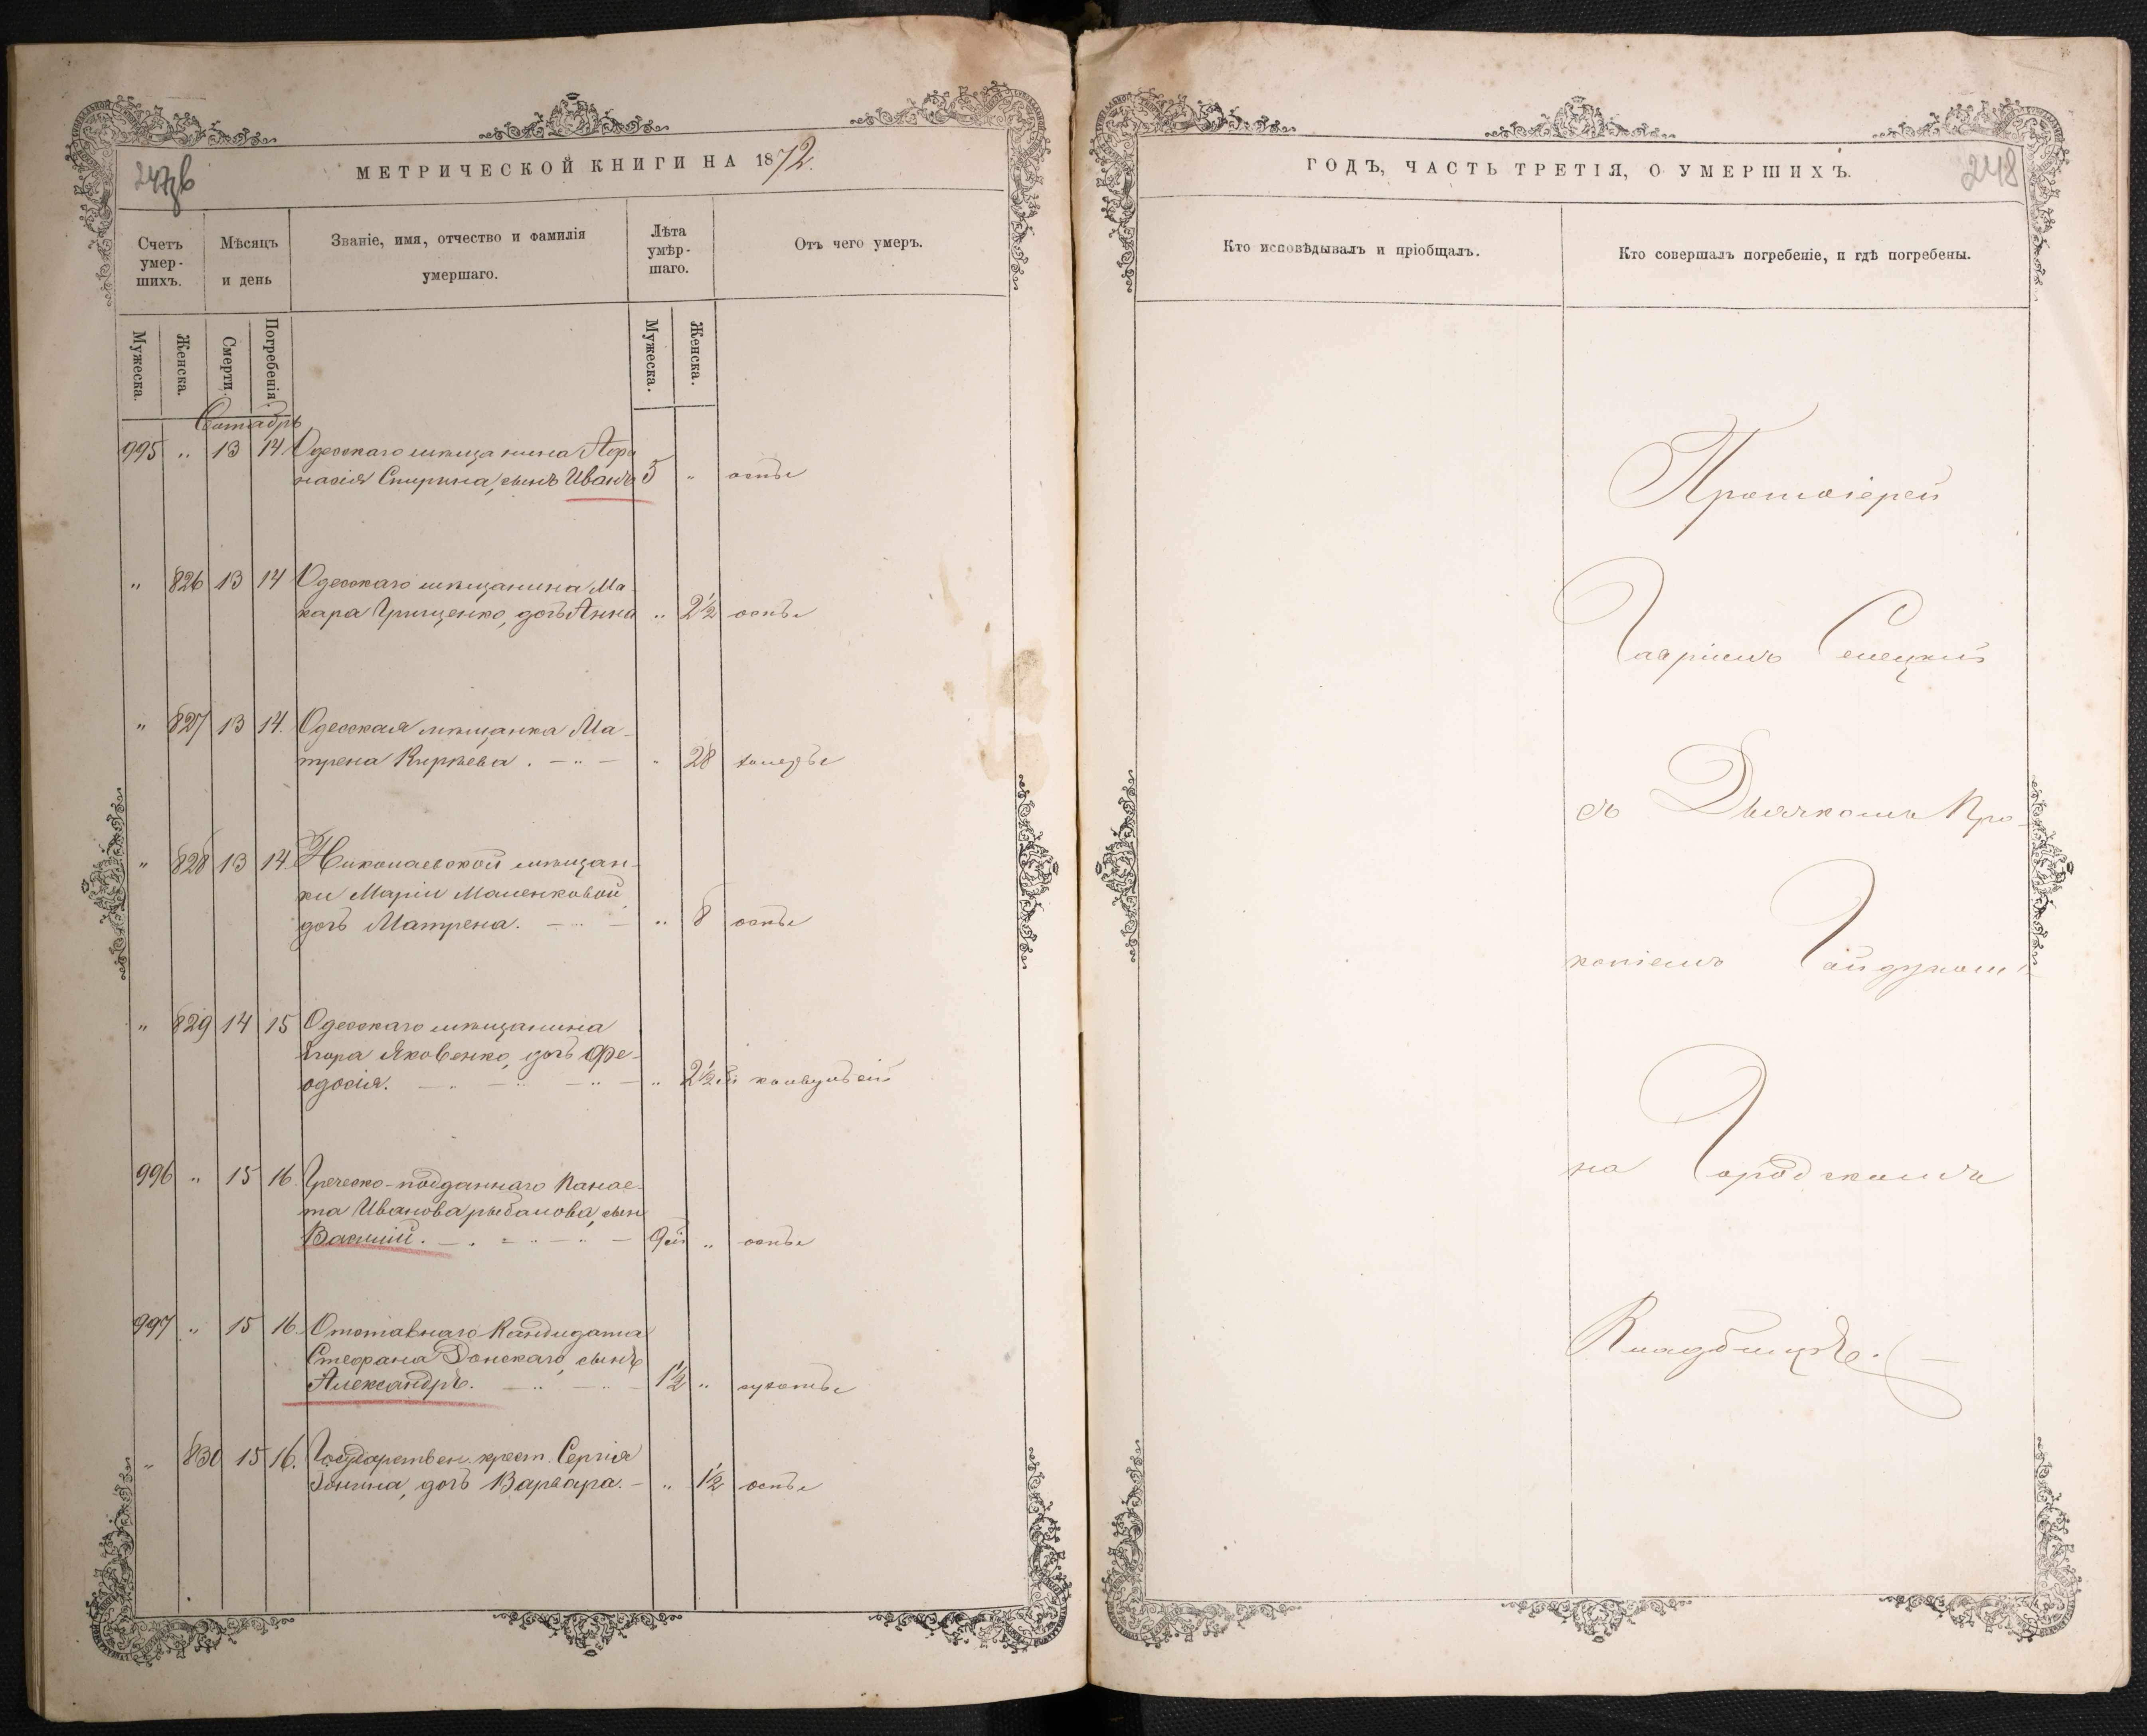 247зв
МЕТРИЧЕСКОЙ КНИГИ НА 1872.
Счетъ умер- шихъ.
Мѣсяцъ и день
Званіе, имя, отчество и фамилія умершаго.
Лѣта умѣр- шаго.
Отъ чего умеръ.
Мужеска.
Женска.
Смерти.
Погребенія.
Мужеска.
Женска.
995 " 13 14 Одесскаго мѣщанина Афа
насія Спирина, сынъ Иванъ 5 " оспы
" 826 13 14 Одесскаго мѣщанина Ма-
кара Грищенко, дочь Анна " 2½ оспы
" 827 13 14. Одесская мѣщанка Ма-
трена Киряева. - " - " 28 холеры
" 828 13 14. Николаевской мѣщан-
ки Маріи Маленковой,
дочь Матрена. - " - " 8 оспы
" 829 14 15 Одесскаго мѣщанина
Егора Яковенко, дочь Фе-
одосія. - " - " - " - " 2½ конвульсій
996 " 15 16. Греческо-подданнаго Панае-
та Иванова, сынъ
- " - " - " - " оспы
997 " 15 16. Отставнаго Кандидата
Стефана Донскаго, сынъ
Александръ. - " - " - 1½ " сухоты
" 830 15 16. Государствен. крест. Сергія
дочь Варвара. - " 1½ оспы
ГОДЪ, ЧАСТЬ ТРЕТІЯ, О УМЕРШИХЪ.
248
Кто исповѣдывалъ и пріобщалъ.
Кто совершалъ погребеніе, и гдѣ погребены.
Протоіерей
Гавріилъ Селецкій
съ Дьячкомъ Про-
копіемъ Гайдукомъ
на Городскомъ
Кладбищѣ.